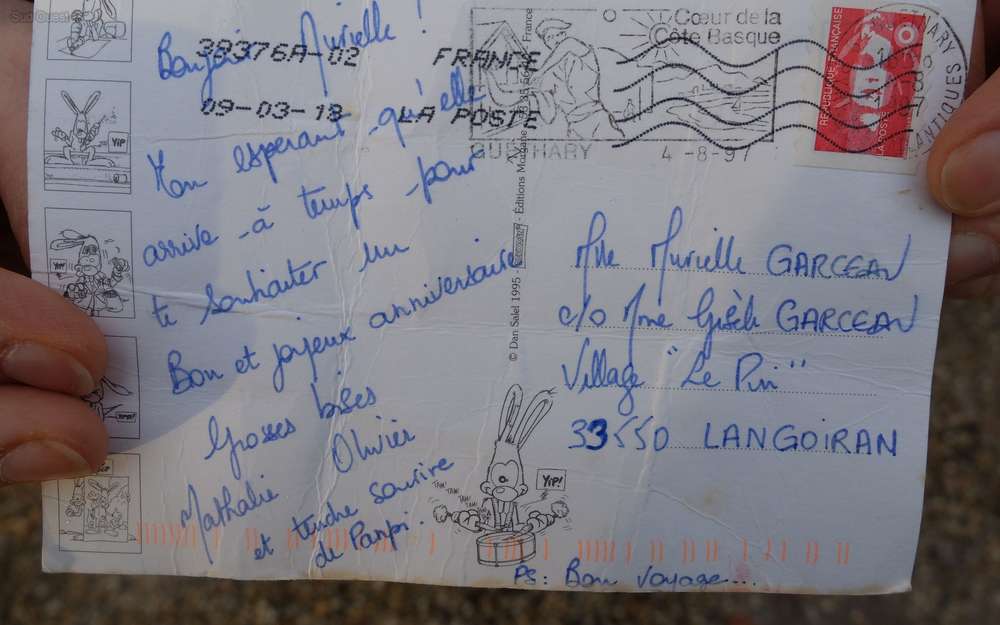 Sud Ouest
Bonjour Murielle !
38376A-02 FRANCE
09-03-13 LA POSTE
Mon esperant qu'elle
arrive à temps pour
te souhaiter un
Bon et joyeux anniversaire
Grosses bises
Nathalie Olivier
et tendre sourire
de Panpi.
Cœur de la
Côte Basque
GUETHARY 4-8-97
RÉPUBLIQUE FRANÇAISE
LA POSTE
ATLANTIQUES
© Dan Salel 1995 - Éditions Morgane
France
Mlle Murielle GARCEAU
c/o Mme Gisèle GARCEAU
Village "Le Pin"
33550 LANGOIRAN
YIP
YIP!
YIP!
YIP!
TAM TAM TAM TAM
PS: Bon Voyage...